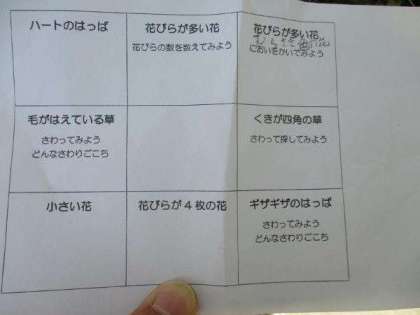 ハートのはっぱ
花びらが多い花
花びらの数を数えてみよう
花びらが多い花
むらさきの花
においをかいでみよう
毛がはえている草
さわってみよう
どんなさわりごこち
くきが四角の草
さわって探してみよう
小さい花
花びらが4枚の花
ギザギザのはっぱ
さわってみよう
どんなさわりごこち